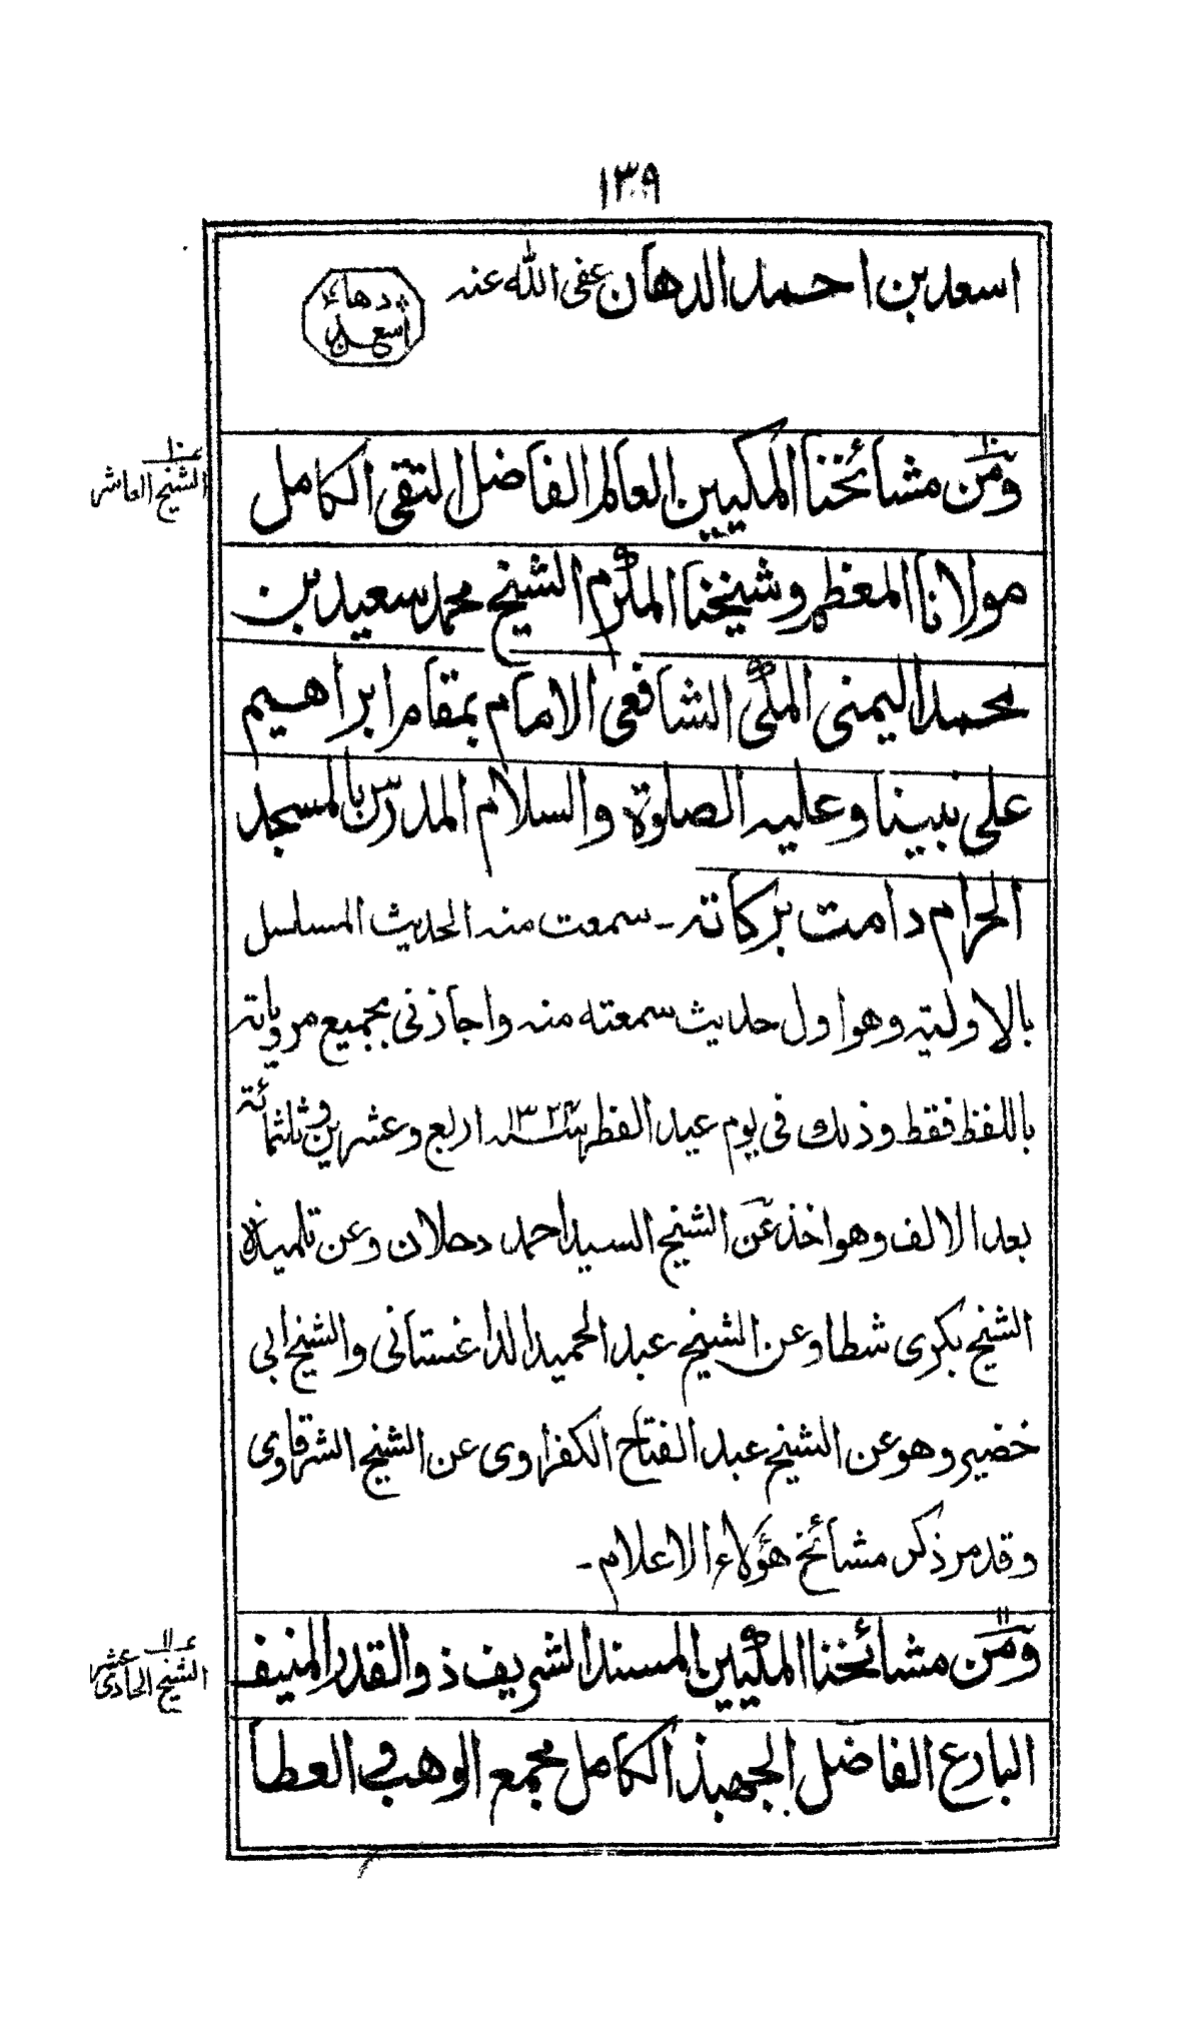 ١٣٩
اسعد بن احمد الدهان عفى الله عنه
دهان
اسعد
١٠
الشيخ العاشر
ومن مشائخنا المكيين العالم الفاضل التقى الكامل
مولانا المعظم وشيخنا المكرم الشيخ محمد سعيد بن
محمد اليمنى المكى الشافعى الامام بمقام ابراهيم
على نبينا وعليه الصلوة والسلام المدرس بالمسجد
الحرام دامت بركاته - سمعت منه الحديث المسلسل
بالاولية وهو اول حديث سمعته منه واجازنى بجميع مروياته
باللفظ فقط وذلك فى يوم عيد الفطر سنه ١٣٢٤ اربع وعشرين وثلثمائة
بعد الالف وهو اخذ عن الشيخ السيد احمد دحلان وعن تلميذه
الشيخ بكرى شطا وعن الشيخ عبد الحميد الداغستانى والشيخ ابى
خضير وهو عن الشيخ عبد الفتاح الكفراوى عن الشيخ الشرقاوى
وقد مر ذكر مشائخ هؤلاء الاعلام -
١١
الشيخ الحادى عشر
ومن مشائخنا المكيين المسند الشريف ذو القدر المنيف
البارع الفاضل الجهبذ الكامل مجمع الوهبى العطا